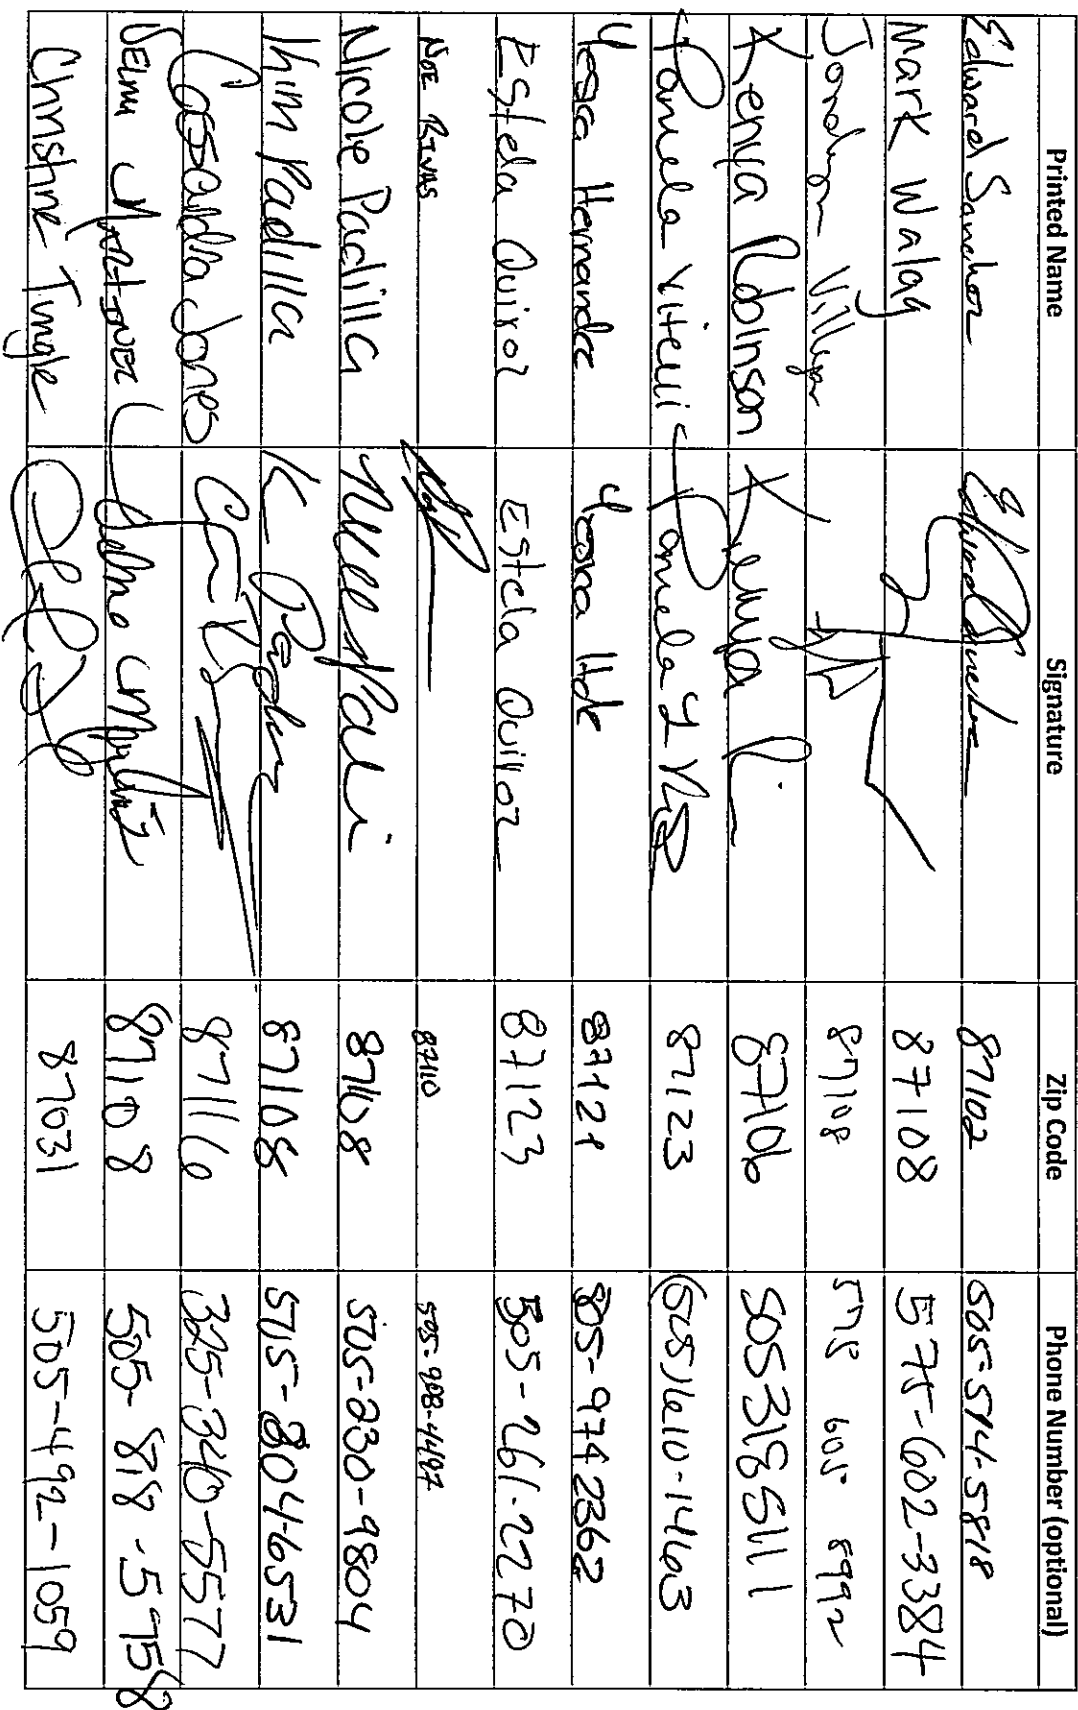 Printed Name Signature Zip Code Phone Number (optional)
Edward Sanchez Edward Sanchez 87102 505-514-5818
Mark Walag 87108 575-602-3384
Jonathan Villegas 87108 575 605 8992
Kenya Robinson Kenya R 87106 505 318 5111
Pamela Vitelli Pamela 87123 (505)610-1463
Hernandez 87121 505-974 2362
Estela Quiroz Estela Quiroz 87123 505-261-2270
Noe Rivas 87110
Nicole Padilla 87108 505-230-9804
Kim Padilla K 87108 505-804-6531
Casandra Jones 87116 325-340-5577
Delma Martinez Delma 87108 505-818-5758
Christine Tingle 87031 505-492-1059